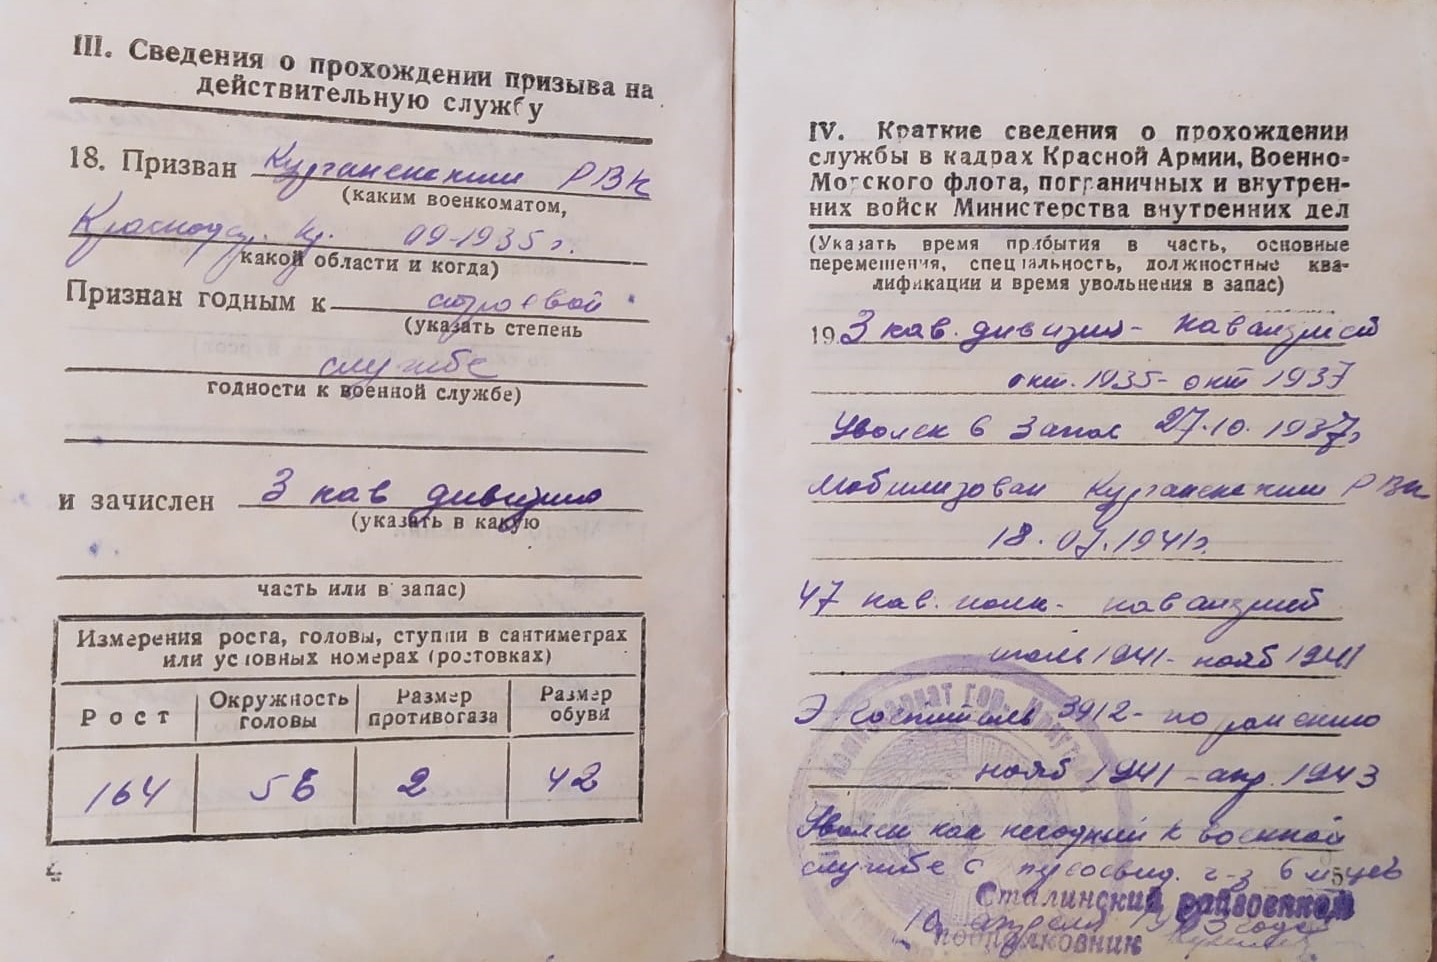 III. Сведения о прохождении призыва на
действительную службу
18. Призван Курганенским РВК
(каким военкоматом,
Краснодар. кр. 09-1935 г.
какой области и когда)
Признан годным к строевой
(указать степень
службе
годности к военной службе)
и зачислен 3 кав дивизию
(указать в какую
часть или в запас)
Измерения роста, головы, ступни в сантиметрах
или условных номерах (ростовках)
Рост Окружность головы Размер противогаза Размер обуви
164 56 2 42
4
IV. Краткие сведения о прохождении
службы в кадрах Красной Армии, Военно-
Морского флота, пограничных и внутрен-
них войск Министерства внутренних дел
(Указать время прибытия в часть, основные
перемещения, специальность, должностные ква-
лификации и время увольнения в запас)
19. 3 кав. дивизия - кавалерист
окт. 1935 - окт 1937
Уволен в запас 27.10.1937г
Мобилизован Курганенским РВК
18.07.1941г.
47 кав. полк - кавалерист
июль 1941 - нояб 1941
Э-госпиталь 3912 - по ранению
нояб 1941 - апр. 1943
Уволен как негодный к военной
службе с переосвид. ч-з 6 м-цев
5
Сталинский райвоенком
10 апреля 1943 года
подполковник